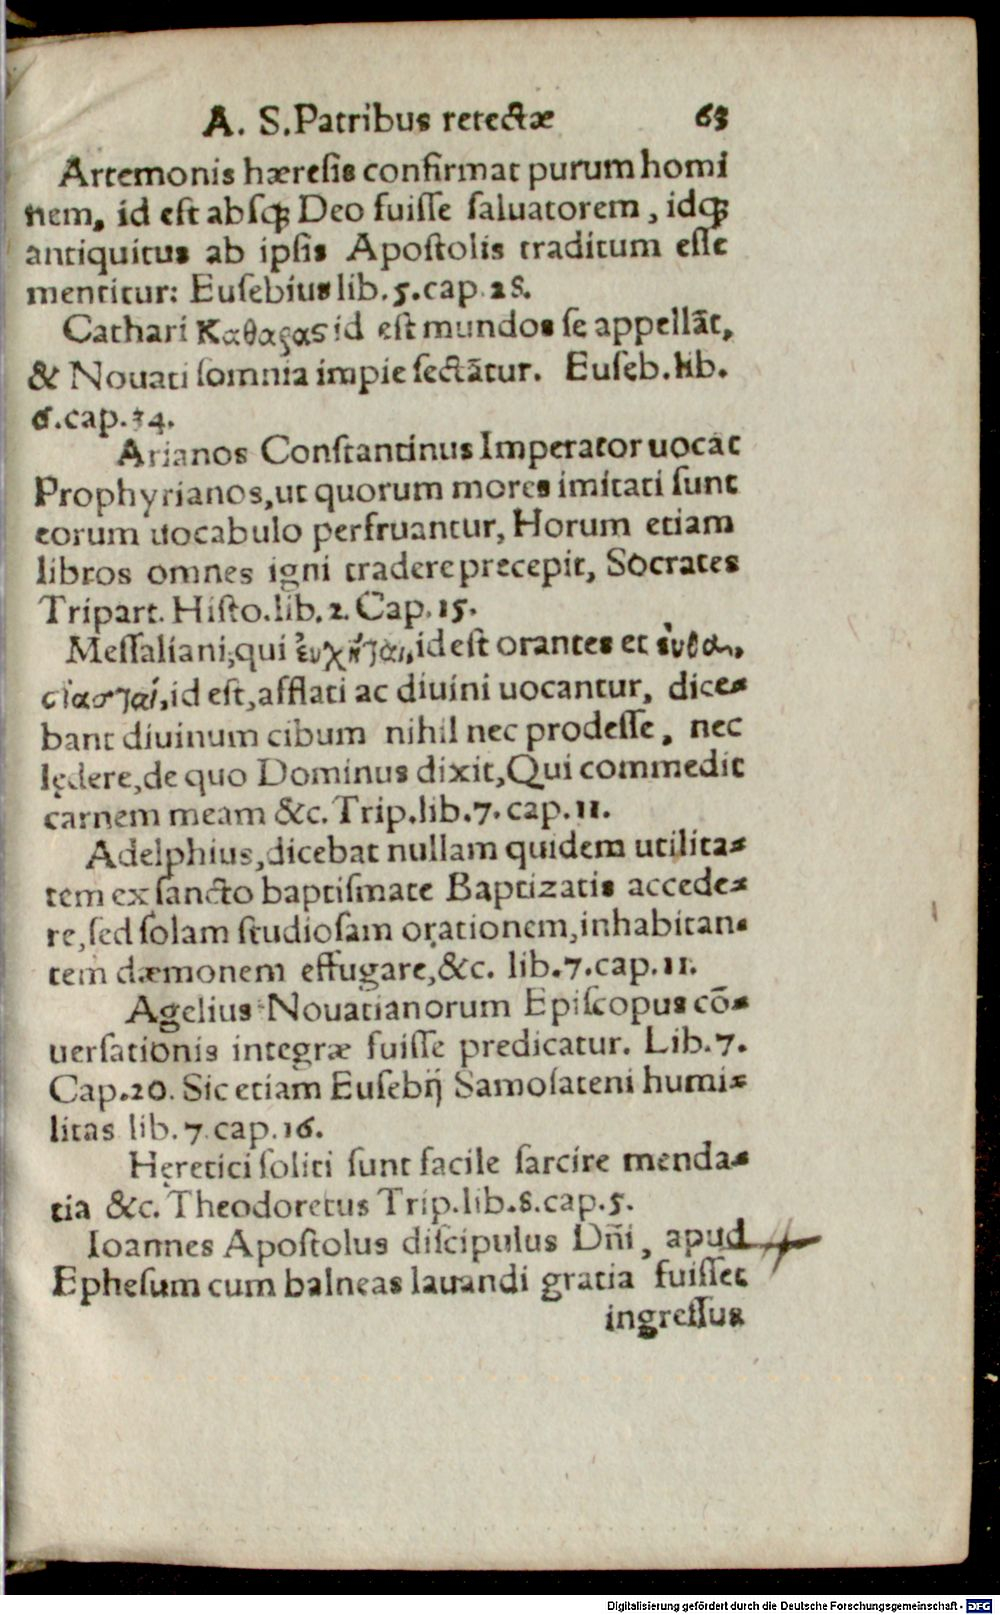 A. S. Patribus retectæ 63
Artemonis hæresis confirmat purum homi
nem, id est absq; Deo fuisse saluatorem, idq;
antiquitus ab ipsis Apostolis traditum esse
mentitur: Eusebius lib. 5. cap. 28.
Cathari Καθαρας id est mundos se appellāt,
& Nouati somnia impie sectātur. Euseb. lib.
6. cap. 34.
Arianos Constantinus Imperator uocat
Prophyrianos, ut quorum mores imitati sunt
eorum uocabulo perfruantur, Horum etiam
libros omnes igni tradere precepit, Socrates
Tripart. Histo. lib. 2. Cap. 15.
Messaliani, qui ἐυχῆται, id est orantes et ἐνθου,
σιασταί, id est, afflati ac diuini uocantur, dice-
bant diuinum cibum nihil nec prodesse, nec
lędere, de quo Dominus dixit, Qui commedit
carnem meam &c. Trip. lib. 7. cap. 11.
Adelphius, dicebat nullam quidem utilita-
tem ex sancto baptismate Baptizatis accede-
re, sed solam studiosam orationem, inhabitan-
tem dæmonem effugare, &c. lib. 7. cap. 11.
Agelius Nouatianorum Episcopus cō-
uersationis integræ fuisse predicatur. Lib. 7.
Cap. 20. Sic etiam Eusebij Samosateni humi-
litas lib. 7. cap. 16.
Hęretici soliti sunt facile sarcire menda-
tia &c. Theodoretus Trip. lib. 8. cap. 5.
Ioannes Apostolus discipulus Dñi, apud
Ephesum cum balneas lauandi gratia fuisset
ingressus
Digitalisierung gefördert durch die Deutsche Forschungsgemeinschaft - DFG